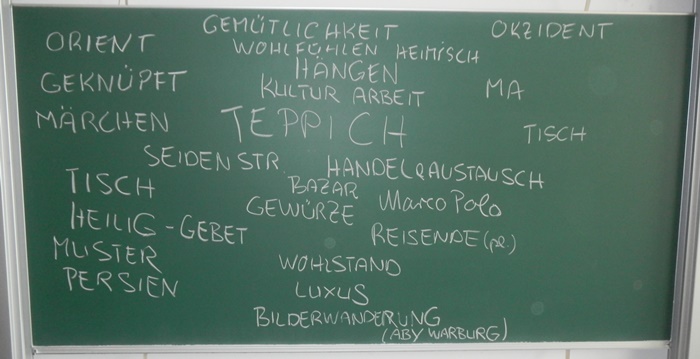 GEMÜTLICHKEIT OKZIDENT
ORIENT WOHLFÜHLEN HEIMISCH
HÄNGEN
GEKNÜPFT KULTUR ARBEIT MA
MÄRCHEN TEPPICH TISCH
SEIDENSTR. HANDEL&AUSTAUSCH
TISCH BAZAR
GEWÜRZE Marco Polo
HEILIG - GEBET REISENDE (pl.)
MUSTER
WOHLSTAND
PERSIEN
LUXUS
BILDERWANDERUNG
(ABY WARBURG)